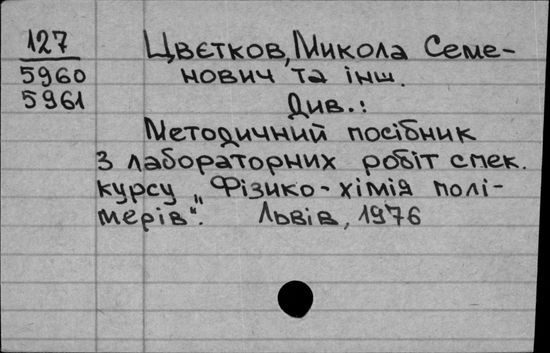 127
5960
5961
Цвєтков, Микола Семе-
нович та інш.
Див.:
Методичний посібник
з лабораторних робіт спек.
курсу „Фізико-хімія полі-
мерів“. Львів, 1976